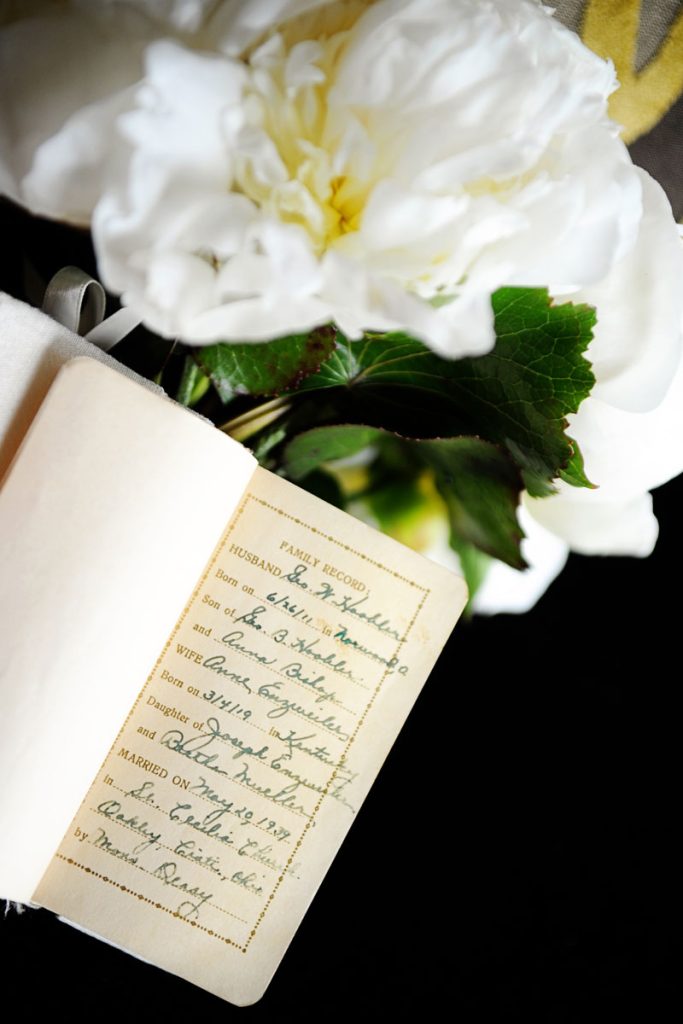 FAMILY RECORD
HUSBAND Geo. W. Hoobler
Born on 6/26/11 in Norwood, O
Son of Geo. B. Hoobler
and Anna Bishop
WIFE Anne Enzweiler
Born on 3/4/19 in Kentucky
Daughter of Joseph Enzweiler
and Bertha Mueller
MARRIED ON May 20, 1939
in St. Cecilia Church
Oakley, Cinti., Ohio
by Mons.